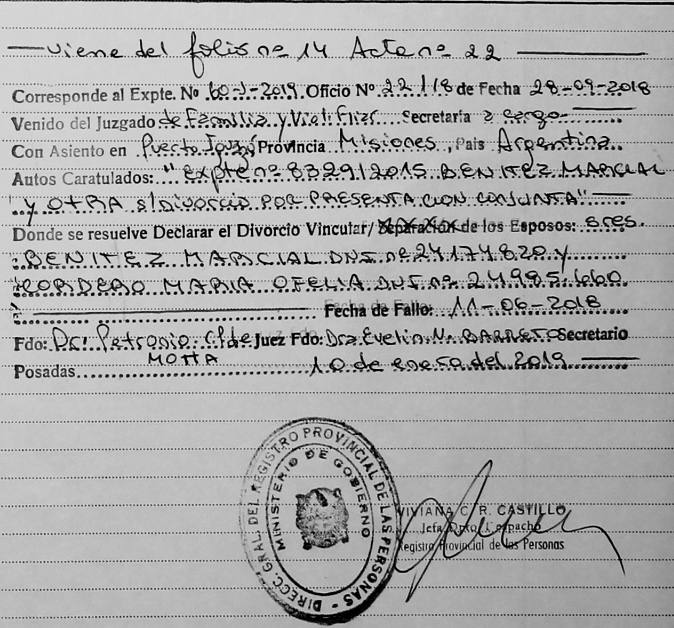 — Viene del folio nº 14 Acta nº 22 —
Corresponde al Expte. Nº 60-J-2019. Oficio Nº 22/18 de Fecha 28-09-2018
Venido del Juzgado de Familia y Viol. Fliar. Secretaría a cargo
Con Asiento en Puerto Iguazú Provincia Misiones, País Argentina
Autos Caratulados: "Expte nº 8329/2015 BENITEZ MARCIAL
y OTRA s/DIVORCIO POR PRESENTACION CONJUNTA"
Donde se resuelve Declarar el Divorcio Vincular/ Separación de los Esposos: Sres.
BENITEZ MARCIAL DNI nº 24174.820 y
CORDERO MARIA OFELIA DNI nº 24.985.660
Fecha de Fallo: 11-06-2018
Fdo: Dr. Petronio Juez Fdo: Dra Evelin N. BARRETO Secretario
MOTTA
Posadas 10 de enero del 2019
DIRECC. GRAL. DEL REGISTRO PROVINCIAL DE LAS PERSONAS -
MINISTERIO DE GOBIERNO
VIVIANA C. R. CASTILLO
Jefa Dpto. Despacho
Registro Provincial de las Personas